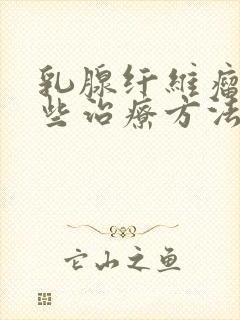 乳腺纤维瘤
些治疗方法
它山之鱼